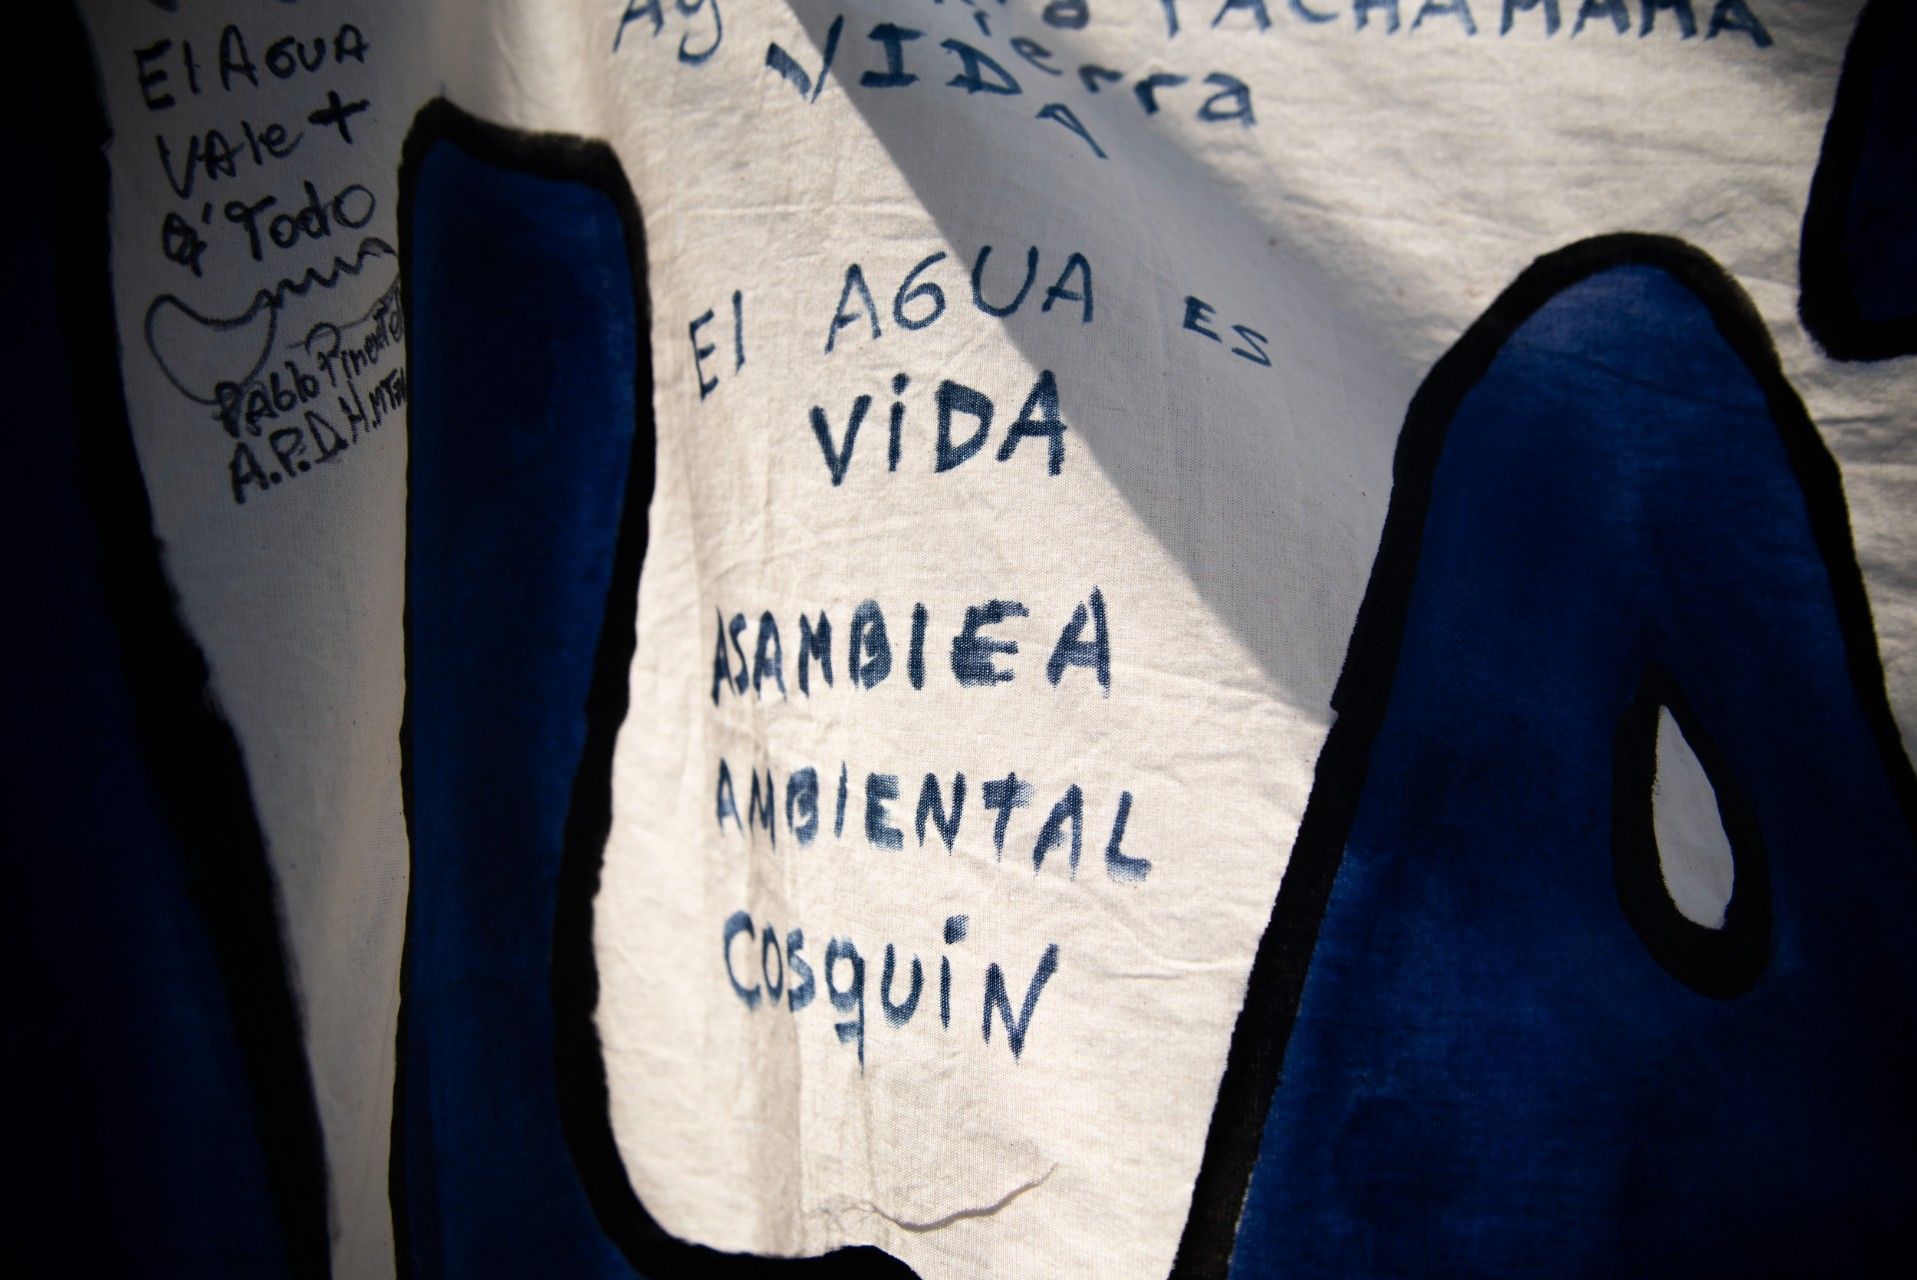 El AGUA
VAle +
Q' Todo
Pablo Pimentel
A.P.D.H.
PACHAMAMA
VIDA
El AGUA ES
ViDA
ASAMBlEA
AMBIENTAL
COSquiN